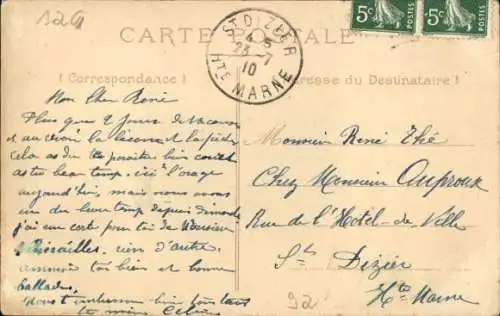 CARTE POSTALE
(Correspondance)
Adresse du Destinataire)
5c POSTES
5c POSTES
ST DIZIER
23 -7
10
HTE MARNE
Mon Cher René
Plus que 2 jours de vacances
et au revoir la
Cela a dû te paraître bien court
as tu beau temps, ici l'orage
aujourd'hui, mais nous avons
eu du beau temps depuis dimanche
j'ai un carte pour toi de Monsieur
rien d'autre
amuse toi bien et bonne
ballade.
Nous t'embrassons bien tous
ta mère
Monsieur René Thé
Chez Monsieur Auproux
Rue de l'Hôtel-de-Ville
St Dizier
Hte Marne
92